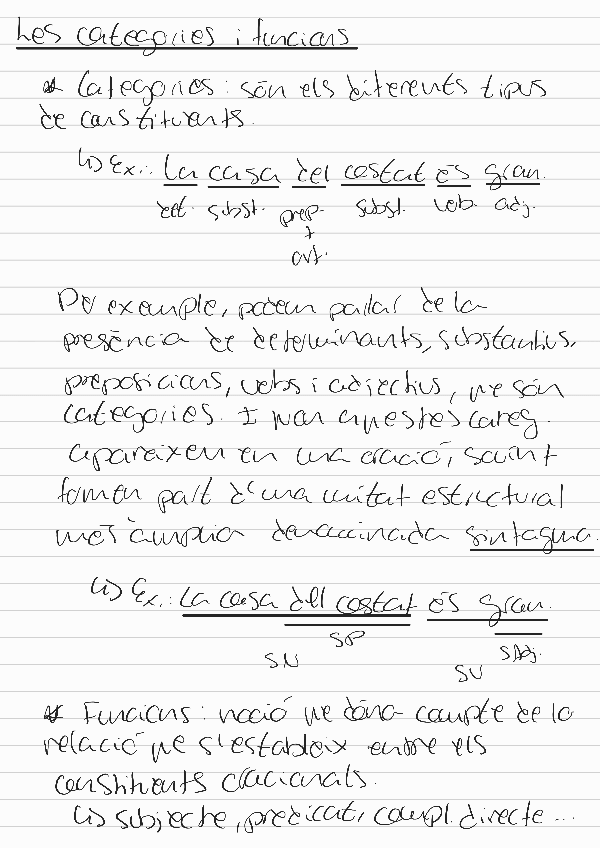 Les categories i funcions
* Categories: són els diferents tipus
de constituents.
↳ Ex.: La casa del costat és gran.
det. subst. prep. subst. verb. adj.
+
art.
Per exemple, podem parlar de la
presència de determinants, substantius,
preposicions, verbs i adjectius, que són
categories. I quan aquestes categ.
apareixen en una oració, sovint
formen part d'una unitat estructural
més àmplia denominada sintagma.
↳ Ex.: La casa del costat és gran.
SP
SN SV SAdj.
* Funcions: noció que dóna compte de la
relació que s'estableix entre els
constituents oracionals.
↳ subjecte, predicat, compl. directe...